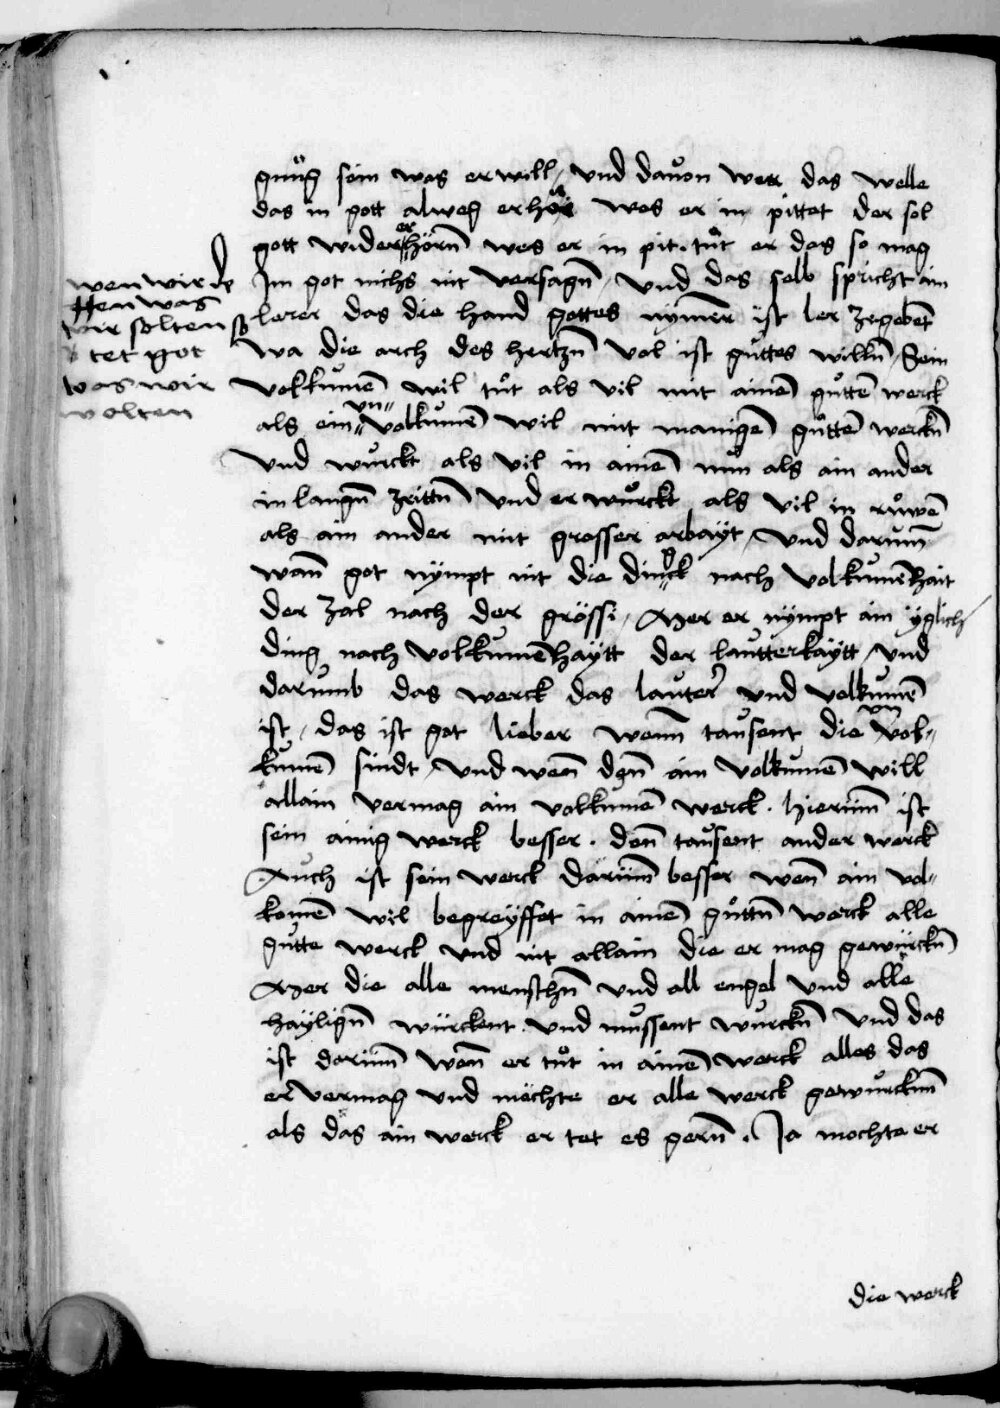 gnůg sein was er will / vnd dauon wer das welle
das in gott alweg erhör wes er in pittet der sol
gott wider erhörn̄ wes er in pit. tůt er das so mag
Im got nichs nit versagn̄ / vnd das selb spricht ain
lerer das die hand gottes nym̄er ist ler zegebn̄
wa die arch des hertzn̄ vol ist gůttes willn̄ / Sein
volkumē wil tůt als vil mit ainē gůttē werck
als ein vn volkumē wil mit manigē gůttē werckn̄
vnd wurckt als vil in ainē nun als ain ander
in langn̄ zeittn̄ vnd er wurckt als vil in růwē
als ain ander mit grosser arbayt / vnd darum̄
wan̄ got nÿmpt nit die dingk nach volkumēhait
der zal nach der grössi / Mer er nÿmpt ain ÿglich
ding nach volkumēhaÿtt der lautterkaÿtt / vnd
darumb das werck das lauter vnd volkumē
ist / das ist got lieber wenn̄ tausent die vn vol=
kumē sindt / vnd wen̄ den̄ ain volkumē will
allain vermag ain volkumē werck. hierum̄ ist
sein ainig werck besser. den̄ tausent ander werck
Auch ist sein werck darum̄ besser wen̄ ain vol=
komē wil begreÿffet in ainē gůttn̄ werck alle
gůtte werck vnd nit allain die er mag gewürckn̄
Mer die alle menschn̄ vnd all engel vnd alle
haÿlign̄ würckent. vnd mussent wurckn̄ vnd das
ist darum̄ wen̄ er tůt in ainē werck alles das
er vermag vnd möchte er alle werck gewurckenn̄
als das ain werck er tet es gern̄. Ja mochte er
die werck
wen wir de
tten was
wir solten so
tet got
was wir
wolten